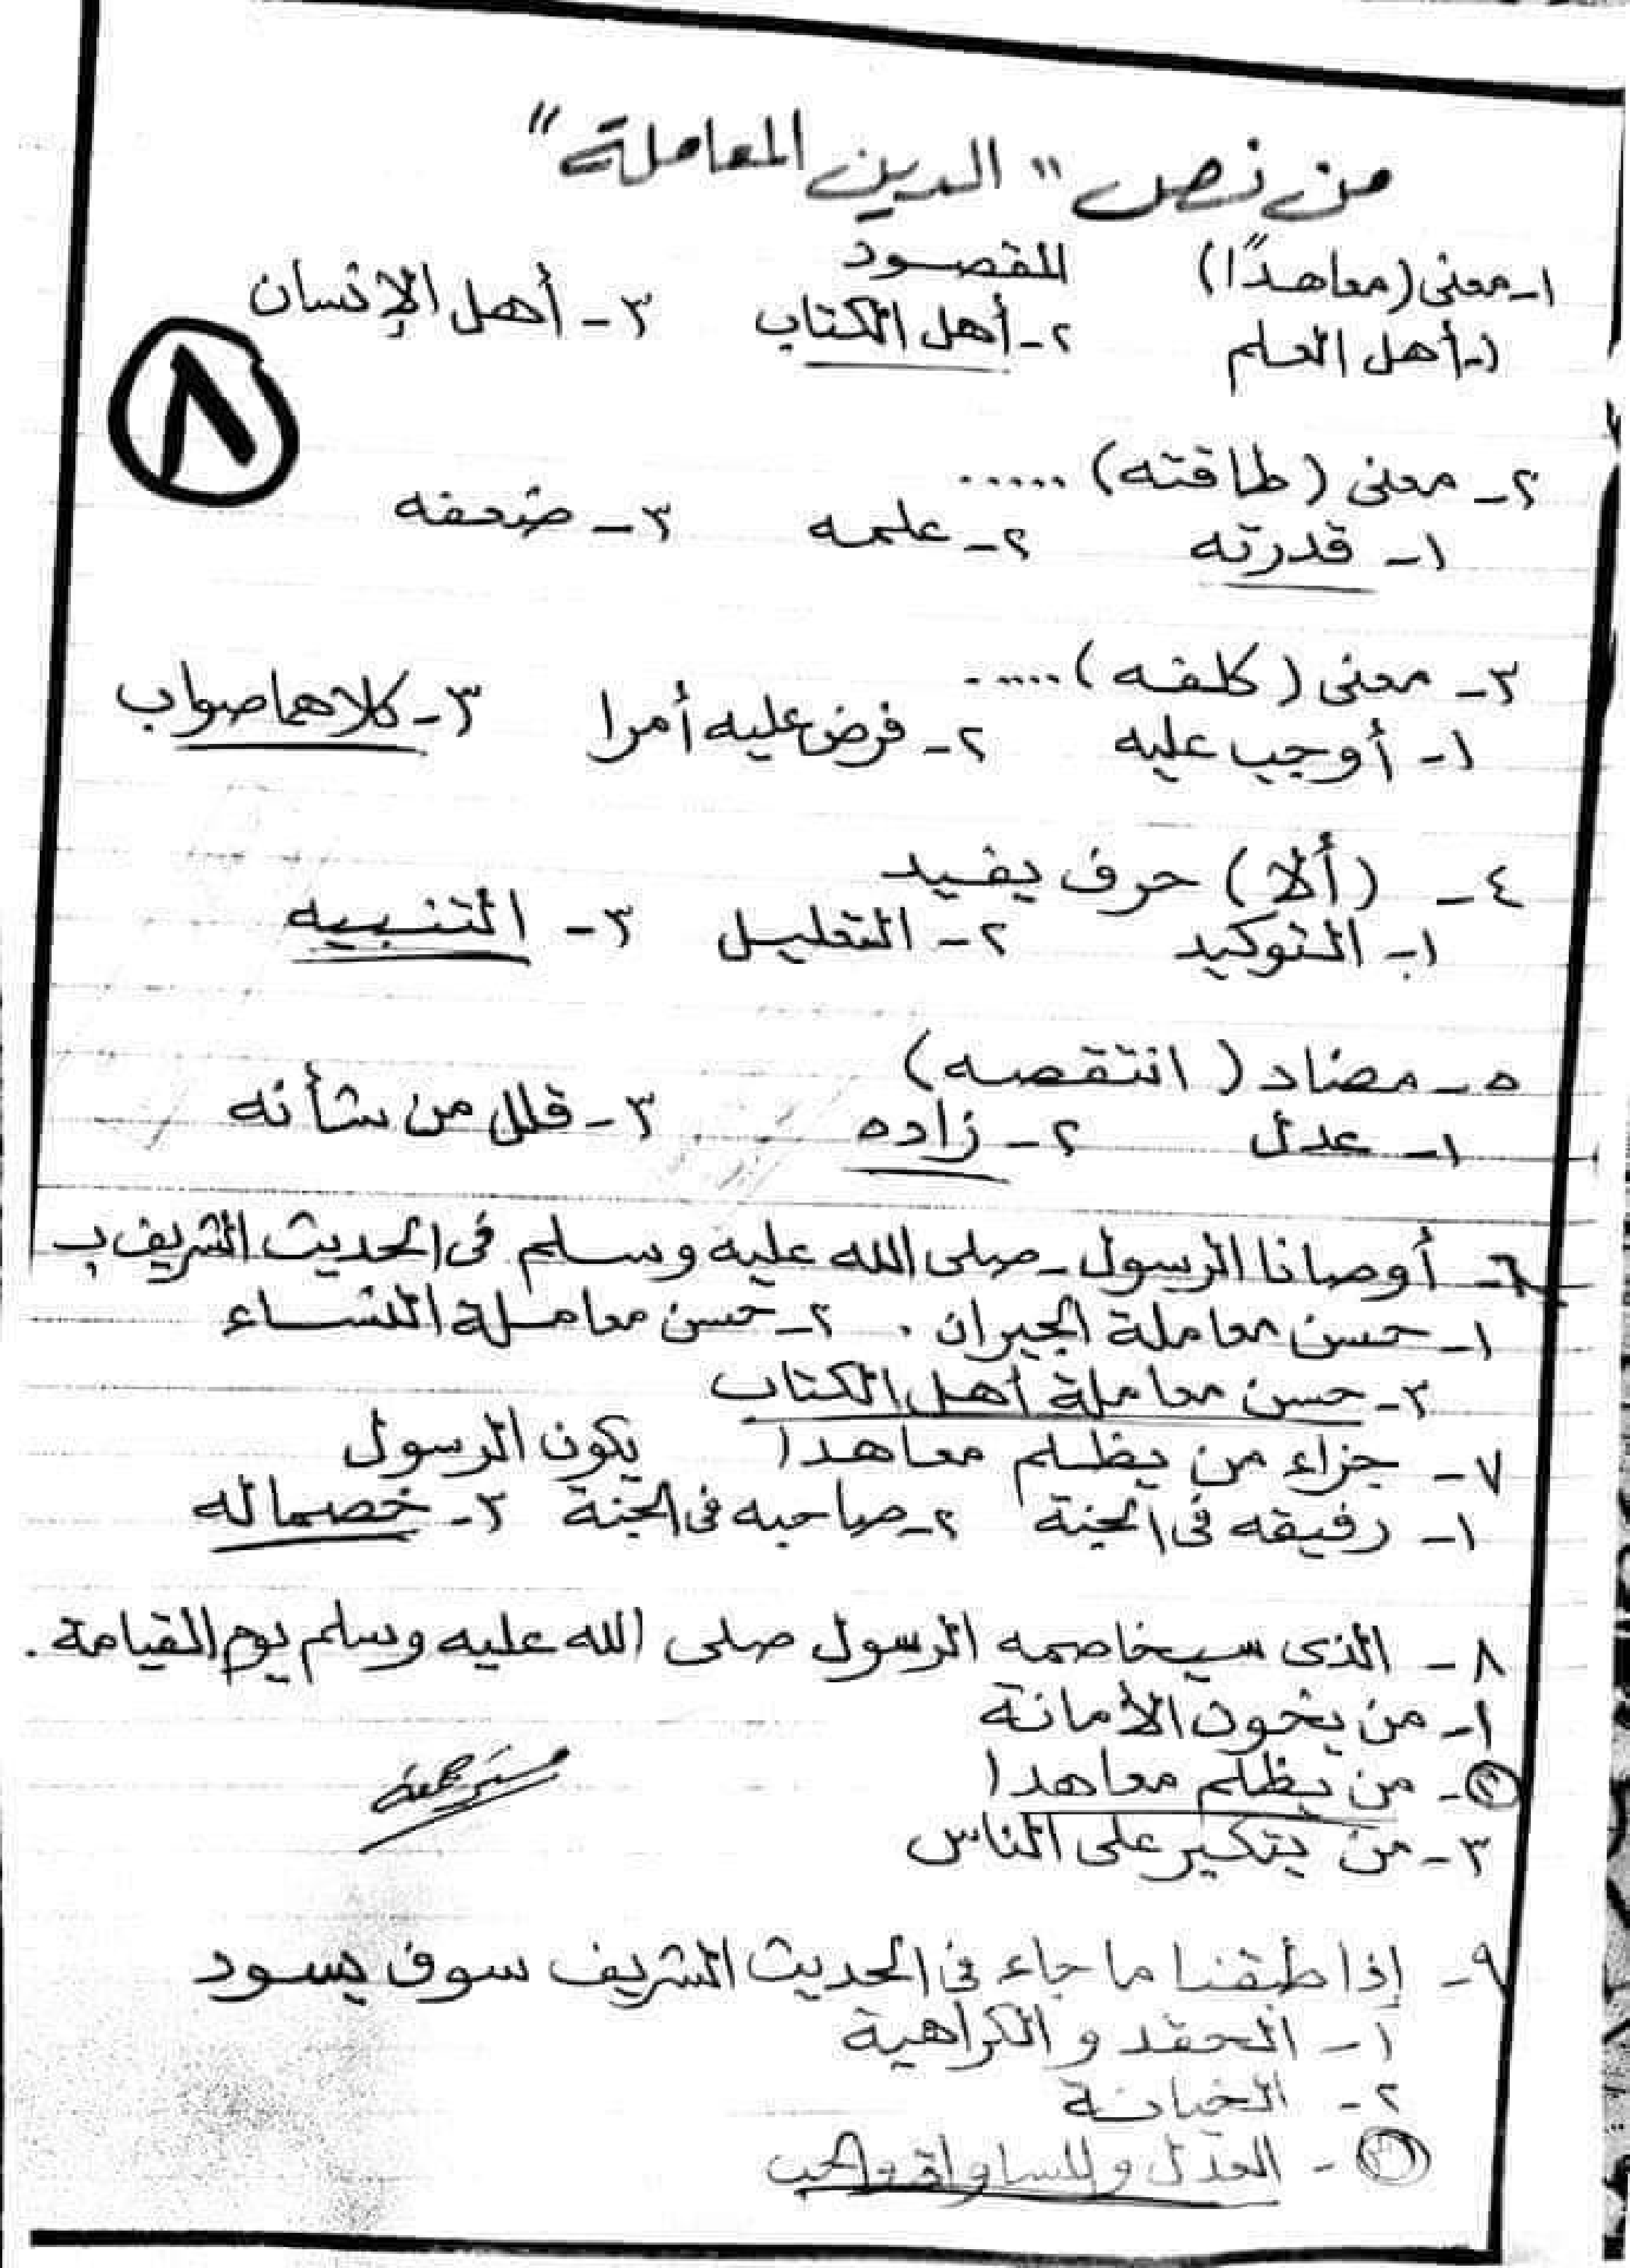 من نص "الدين المعاملة"
١- معنى (معاهدًا) المقصود
١- أهل العلم ٢- أهل الكتاب ٣- أهل الإنسان
٨
٢- معنى (طاقته) ......
١- قدرته ٢- علمه ٣- ضعفه
٣- معنى (كلفه) ......
١- أوجب عليه ٢- فرض عليه أمرا ٣- كلاهما صواب
٤- (ألا) حرف يفيد
١- التوكيد ٢- التقليل ٣- التنبيه
٥- مضاد (انتقصه)
١- عدل ٢- زاده ٣- قلل من شأنه
٦- أوصانا الرسول - صلى الله عليه وسلم فى الحديث الشريف بـ
١- حسن معاملة الجيران . ٢- حسن معاملة النساء
٣- حسن معاملة أهل الكتاب
٧- جزاء من يظلم معاهدا يكون الرسول
١- رفيقه فى الجنة ٢- صاحبه فى الجنة ٣- خصما له
٨- الذى سيخاصمه الرسول صلى الله عليه وسلم يوم القيامة .
١- من يخون الأمانة
٢- من يظلم معاهدا
٣- من يتكبر على الناس
٩- إذا طبقنا ما جاء فى الحديث الشريف سوف يسود
١- الحقد و الكراهية
٢- الخيانة
٣- العدل والمساواة والحب